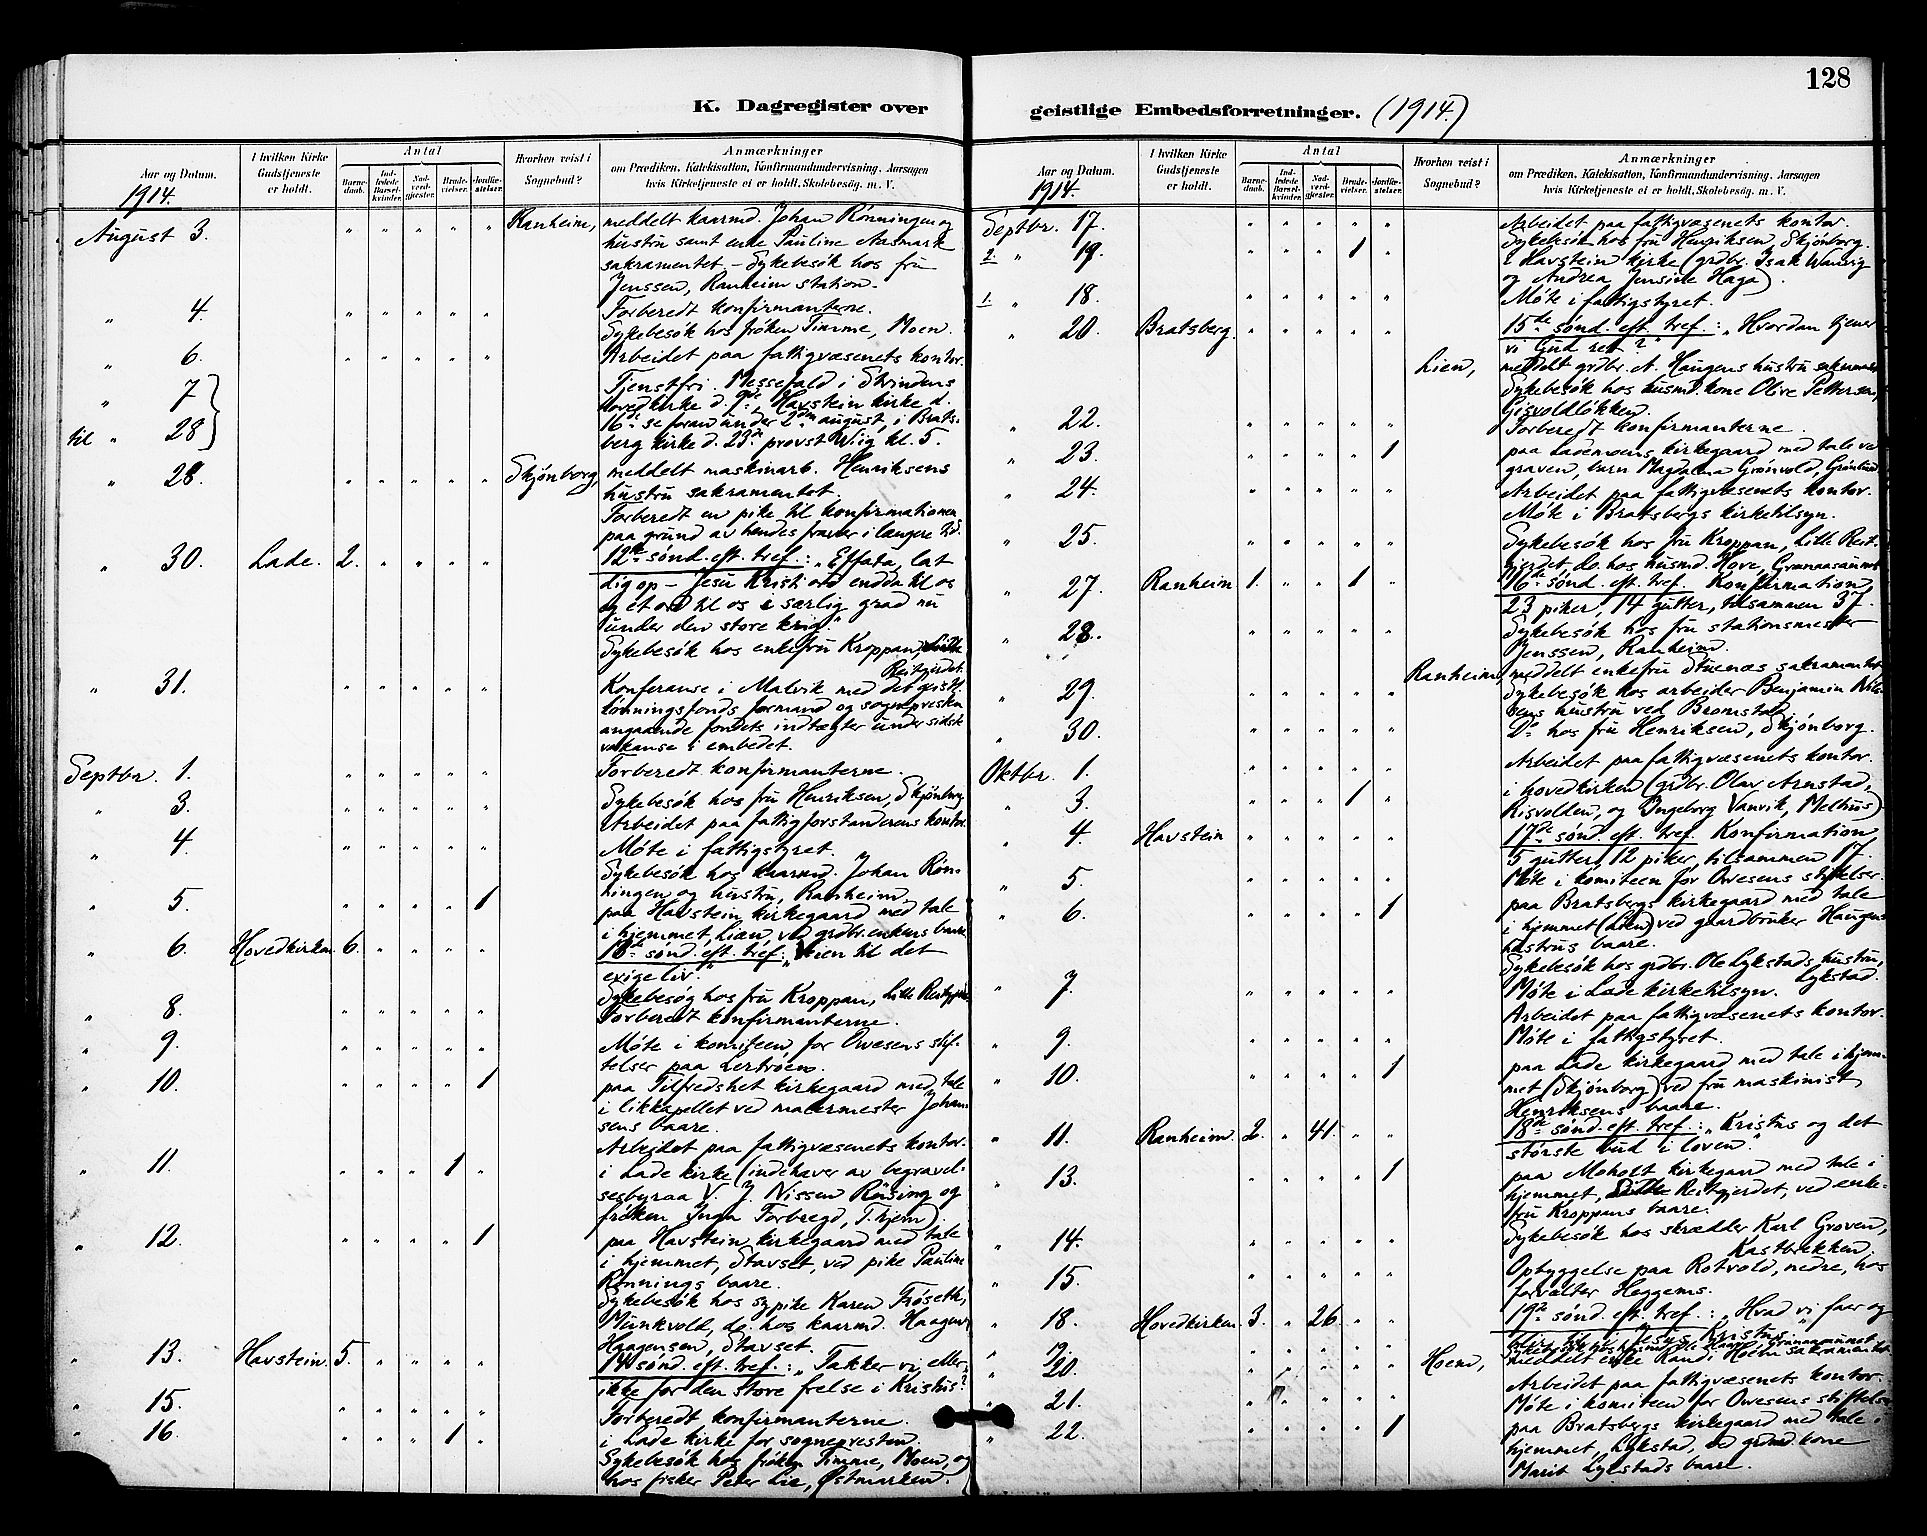 128
K. Dagregister over
geistlige Embedsforretninger. (1914.)
Aar og Datum. I hvilken Kirke Gudstjeneste er holdt. Antal Barnedaab. Indledede Barselkvinder. Nadverdgjester. Brudevielser. Jordfæstelser. Hvorhen reist i Sognebud? Anmærkninger
om Prædiken, Katekisation, Konfirmandundervisning, Aarsagen
hvis Kirketjeneste ei er holdt, Skolebesøg. m. V.
1914.
August 3. " " " " " Ranheim, meddelt kaarmd. Johan Rønningen og
hustru samt enke Pauline Aasmark
sakramentet – Sykebesøk hos fru
Jenssen, Ranheim station.
" 4. " " " " " Forberedt konfirmanterne.
Sykebesøk hos frøken Timme, Moen.
" 6. " " " " " Arbeidet paa fattigvæsenets kontor.
" 7 Tjenstfri. Messefald i Strindens
hovedkirke d. 9de, Havstein kirke d.
til " 28 16de se foran under 2den august, i Brats-
berg kirke d. 23de provst Wiig kl. 5.
" 28. " " " " " Skjønborg, meddelt maskinarb. Henriksens
hustru sakramentet.
Forberedt en pike til konfirmationen
paa grund av hendes fravær i længere tid.
" 30. Lade. 2. " " " " 12te sønd. eft. tref.: "Effata, lat
dig op – Jesu Kristi ord endda til os
og et ord til os i særlig grad nu
under den store krig."
Sykebesøk hos enkefru Kroppan, Lille
Reitgjerdet.
" 31. " " " " " Konferanse i Malvik med det geistl.
lønningsfonds formand og sognepresten
angaaende fondets indtægter under sidste
vakanse i embedet.
Septbr. 1. " " " " " Forberedt konfirmanterne.
" 3. " " " " " Sykebesøk hos fru Henriksen, Skjønborg
Arbeidet paa fattigforstanderens kontor.
" 4. " " " " " Møte i fattigstyret.
Sykebesøk hos kaarmd. Johan Røn-
ningen og hustru, Ranheim.
" 5. " " " " 1 paa Havstein kirkegaard med tale
i hjemmet, Lian, ved grdbr. enkens baare
" 6. Hovedkirken 6. " " " " sønd. eft. tref.: "Veien til det
evige liv."
Sykebesøg hos fru Kroppan, Lille Reitgjerdet
" 8. " " " " " Forberedt konfirmanterne.
" 9. " " " " " Møte i komiteen for Owesens stif-
telser paa Leistrøen.
" 10. " " " " 1 paa Tilfredshet kirkegaard med tale
i likkapellet ved malermester Johan-
sens baare.
Arbeidet paa fattigvæsenets kontor.
" 11. " " " 1 " i Lade kirke (indehaver av begravel-
sesbyraa V. J. Nissen Røising og
frøken Inga Forbregd, T.hjem).
" 12. " " " " 1 paa Havstein kirkegaard med tale
i hjemmet, Stavset, ved pike Pauline
Rønnings baare.
Sykebesøk hos sypike Karen Frøseth,
Munkvold, do. hos kaarmd. Haagen
Haagensen, Stavset.
" 13. Havstein. 5. " " " " 14de sønd. eft. tref.: "Takker vi eller
ikke for den store frelse i Kristus?
" 15. " " " " " Forberedt konfirmanterne.
" 16. " " " 1 " i Lade kirke for sognepresten.
Sykebesøk hos frøken Timme, Moen, og
hos fisker Peter Lie, Østmarken.
Aar og Datum. I hvilken Kirke Gudstjeneste er holdt. Antal Barnedaab. Indledede Barselkvinder. Nadverdgjester. Brudevielser. Jordfæstelser. Hvorhen reist i Sognebud? Anmærkninger
om Prædiken, Katekisation, Konfirmandundervisning, Aarsagen
hvis Kirketjeneste ei er holdt, Skolebesøg. m. V.
1914.
Septbr. 17. " " " " " Arbeidet paa fattigvæsenets kontor.
Sykebesøk hos fru Henriksen, Skjønborg.
2. " 19. " " " 1 " i Havstein kirke (grdbr. Isak Wanvig
og Andrea Jensine Haga).
1. " 18. " " " " " Møte i fattigstyret.
" 20. Bratsberg. " " " " " 15de sønd. eft. tref.: "Hvordan tjener
vi Gud ret?"
Lien, meddelt grdbr. A. Haugens hustru sakramentet
Sykebesøk hos husmd. kone Olive Pettersen,
Gisvoldløkken.
" 22. " " " " " Forberedt konfirmanterne.
" 23. " " " " 1 paa Lademoens kirkegaard med tale ved
graven, barn Magdalna Grønvold, Grønlund
" 24. " " " " " Arbeidet paa fattigvæsenets kontor.
Møte i Bratsbergs kirketilsyn.
" 25. " " " " " Sykebesøk hos fru Kroppan, Lille Reit-
gjerdet, do. hos husmd. Hove,
" 27. Ranheim 1. " " 1 " 16de sønd. eft. tref. Konfirmation
23 piker, 14 gutter, tilsammen 37.
" 28. " " " " " Sykebesøk hos fru stationsmester
Jenssen, Ranheim.
" " Ranheim, meddelt enkefru Stuenæs sakramentet
" 29. " " " " " Sykebesøk hos arbeider Benjamin Nil-
sens hustru ved Bromstad.
" 30. " " " " " Do hos fru Henriksen, Skjønborg.
Oktbr. 1. " " " " " Arbeidet paa fattigvæsenets kontor.
" 3. " " " 1 " i hovedkirken (grdbr. Olav Arnstad,
Risvolden, og Ingeborg Vanvik, Melhus)
" 4. Havstein " " " " " 17de sønd. eft. tref. Konfirmation
5 gutter, 12 piker, tilsammen 17.
" 5. " " " " " Møte i komiteen for Owesens stiftelser.
" 6. " " " " 1 paa Bratsbergs kirkegaard med tale
i hjemmet (Lien) ved gaardbruker Haugens
hustrus baare.
Sykebesøk hos grdbr. Ole Lykstads hustru,
Lykstad.
" 7. " " " " " Møte i Lade kirketilsyn.
Arbeidet paa fattigvæsenets kontor.
" 9. " " " " " Møte i fattigstyret.
" 10. " " " " 1 paa Lade kirkegaard med tale i hjem-
met (Skjønborg) ved fru maskinist
Henriksens baare.
" 11. Ranheim. 2. " 41. " " 18de sønd. eft. tref.: "Kristus og det
største bud i loven."
" 13. " " " " 1 paa Moholt kirkegaard med tale i
hjemmet, Lille Reitgjerdet, ved enke-
fru Kroppans baare.
" 14. " " " " " Sykebesøk hos skrædder Karl Groven,
Kastbrekken.
" 15. " " " " " Opbyggelse paa Rotvold, nedre, hos
forvalter Heggems.
" 18. Hovedkirken 3. " 26. " " 19de sønd. eft. tref.: "Hvad vi faer og
blir til i Jesus Kristus.
" 19. " " " " " Sykebesøk hos
" 20. " " " " " Hoem, meddelt enke Randi Hoem sakramentet
Arbeidet paa fattigvæsenets kontor.
" 21. " " " " " Møte i komiteen for Owesens stiftelser
" 22. " " " " 1 paa Bratsbergs kirkegaard med tale i
hjemmet, Lykstad, ved grdmd. kone
Marit Lykstads baare.